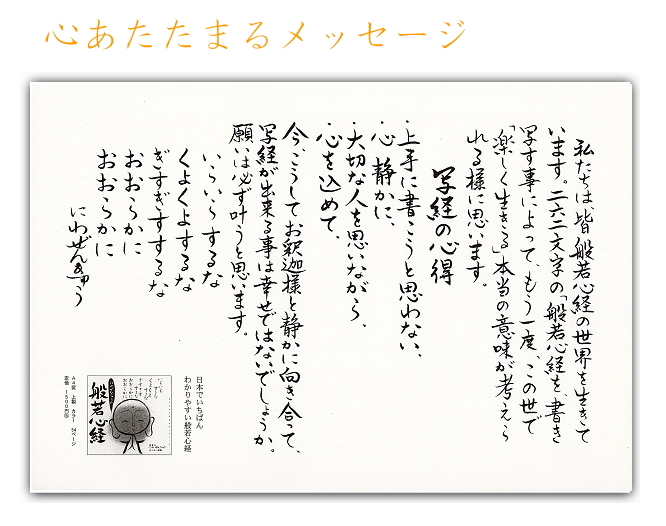 心あたたまるメッセージ
私たちは、皆般若心経の世界を生きて
います。二六二文字の「般若心経を、書き
写す事によって、もう一度、この世で
「楽しく生きる」本当の意味が考えら
れる様に思います。
写経の心得
・上手に書こうと思わない、
・心静かに、
・大切な人を思いながら、
・心を込めて、
今、こうしてお釈迦様と静かに向き合って、
写経が出来る事は幸せではないでしょうか。
願いは必ず叶うと思います。
いらいらするな
くよくよするな
ぎすぎすするな
おおらかに
おおらかに
にわぜんきゅう
日本でいちばん
わかりやすい般若心経
般若心経
A4変 上製 カラー 54ページ
定価 1500円